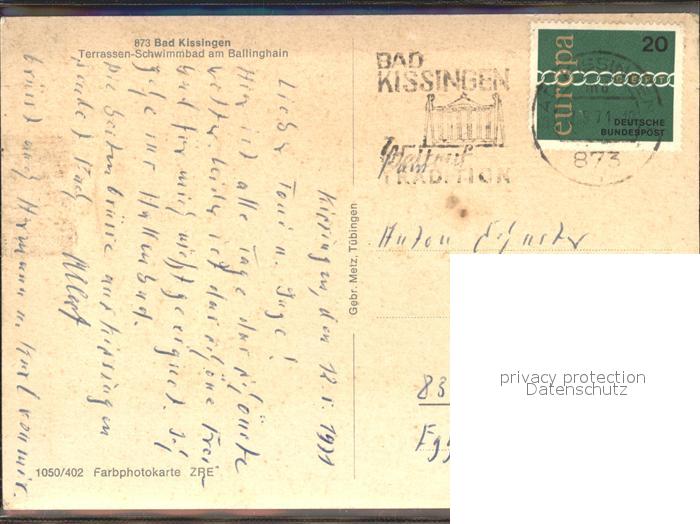 873 Bad Kissingen
Terrassen-Schwimmbad am Ballinghain
Kissingen, den 12. 5. 1971
Lieber Toni u. Inge!
Hier ist alle Tage das schönste
Wetter leider ist das schöne Frei-
bad für mich nicht geeignet. Ich
gehe ins Hallenbad.
Die besten Grüsse aus Kissingen
sendet Euch
grüsst auch Hermann u. Karl von mir.
1050/402 Farbphotokarte "ZRE"
Gebr. Metz, Tübingen
BAD
KISSINGEN
Weltruf
TRADITION
873
europa
20
CEPT
DEUTSCHE
BUNDESPOST
Anton
83
privacy protection
Datenschutz